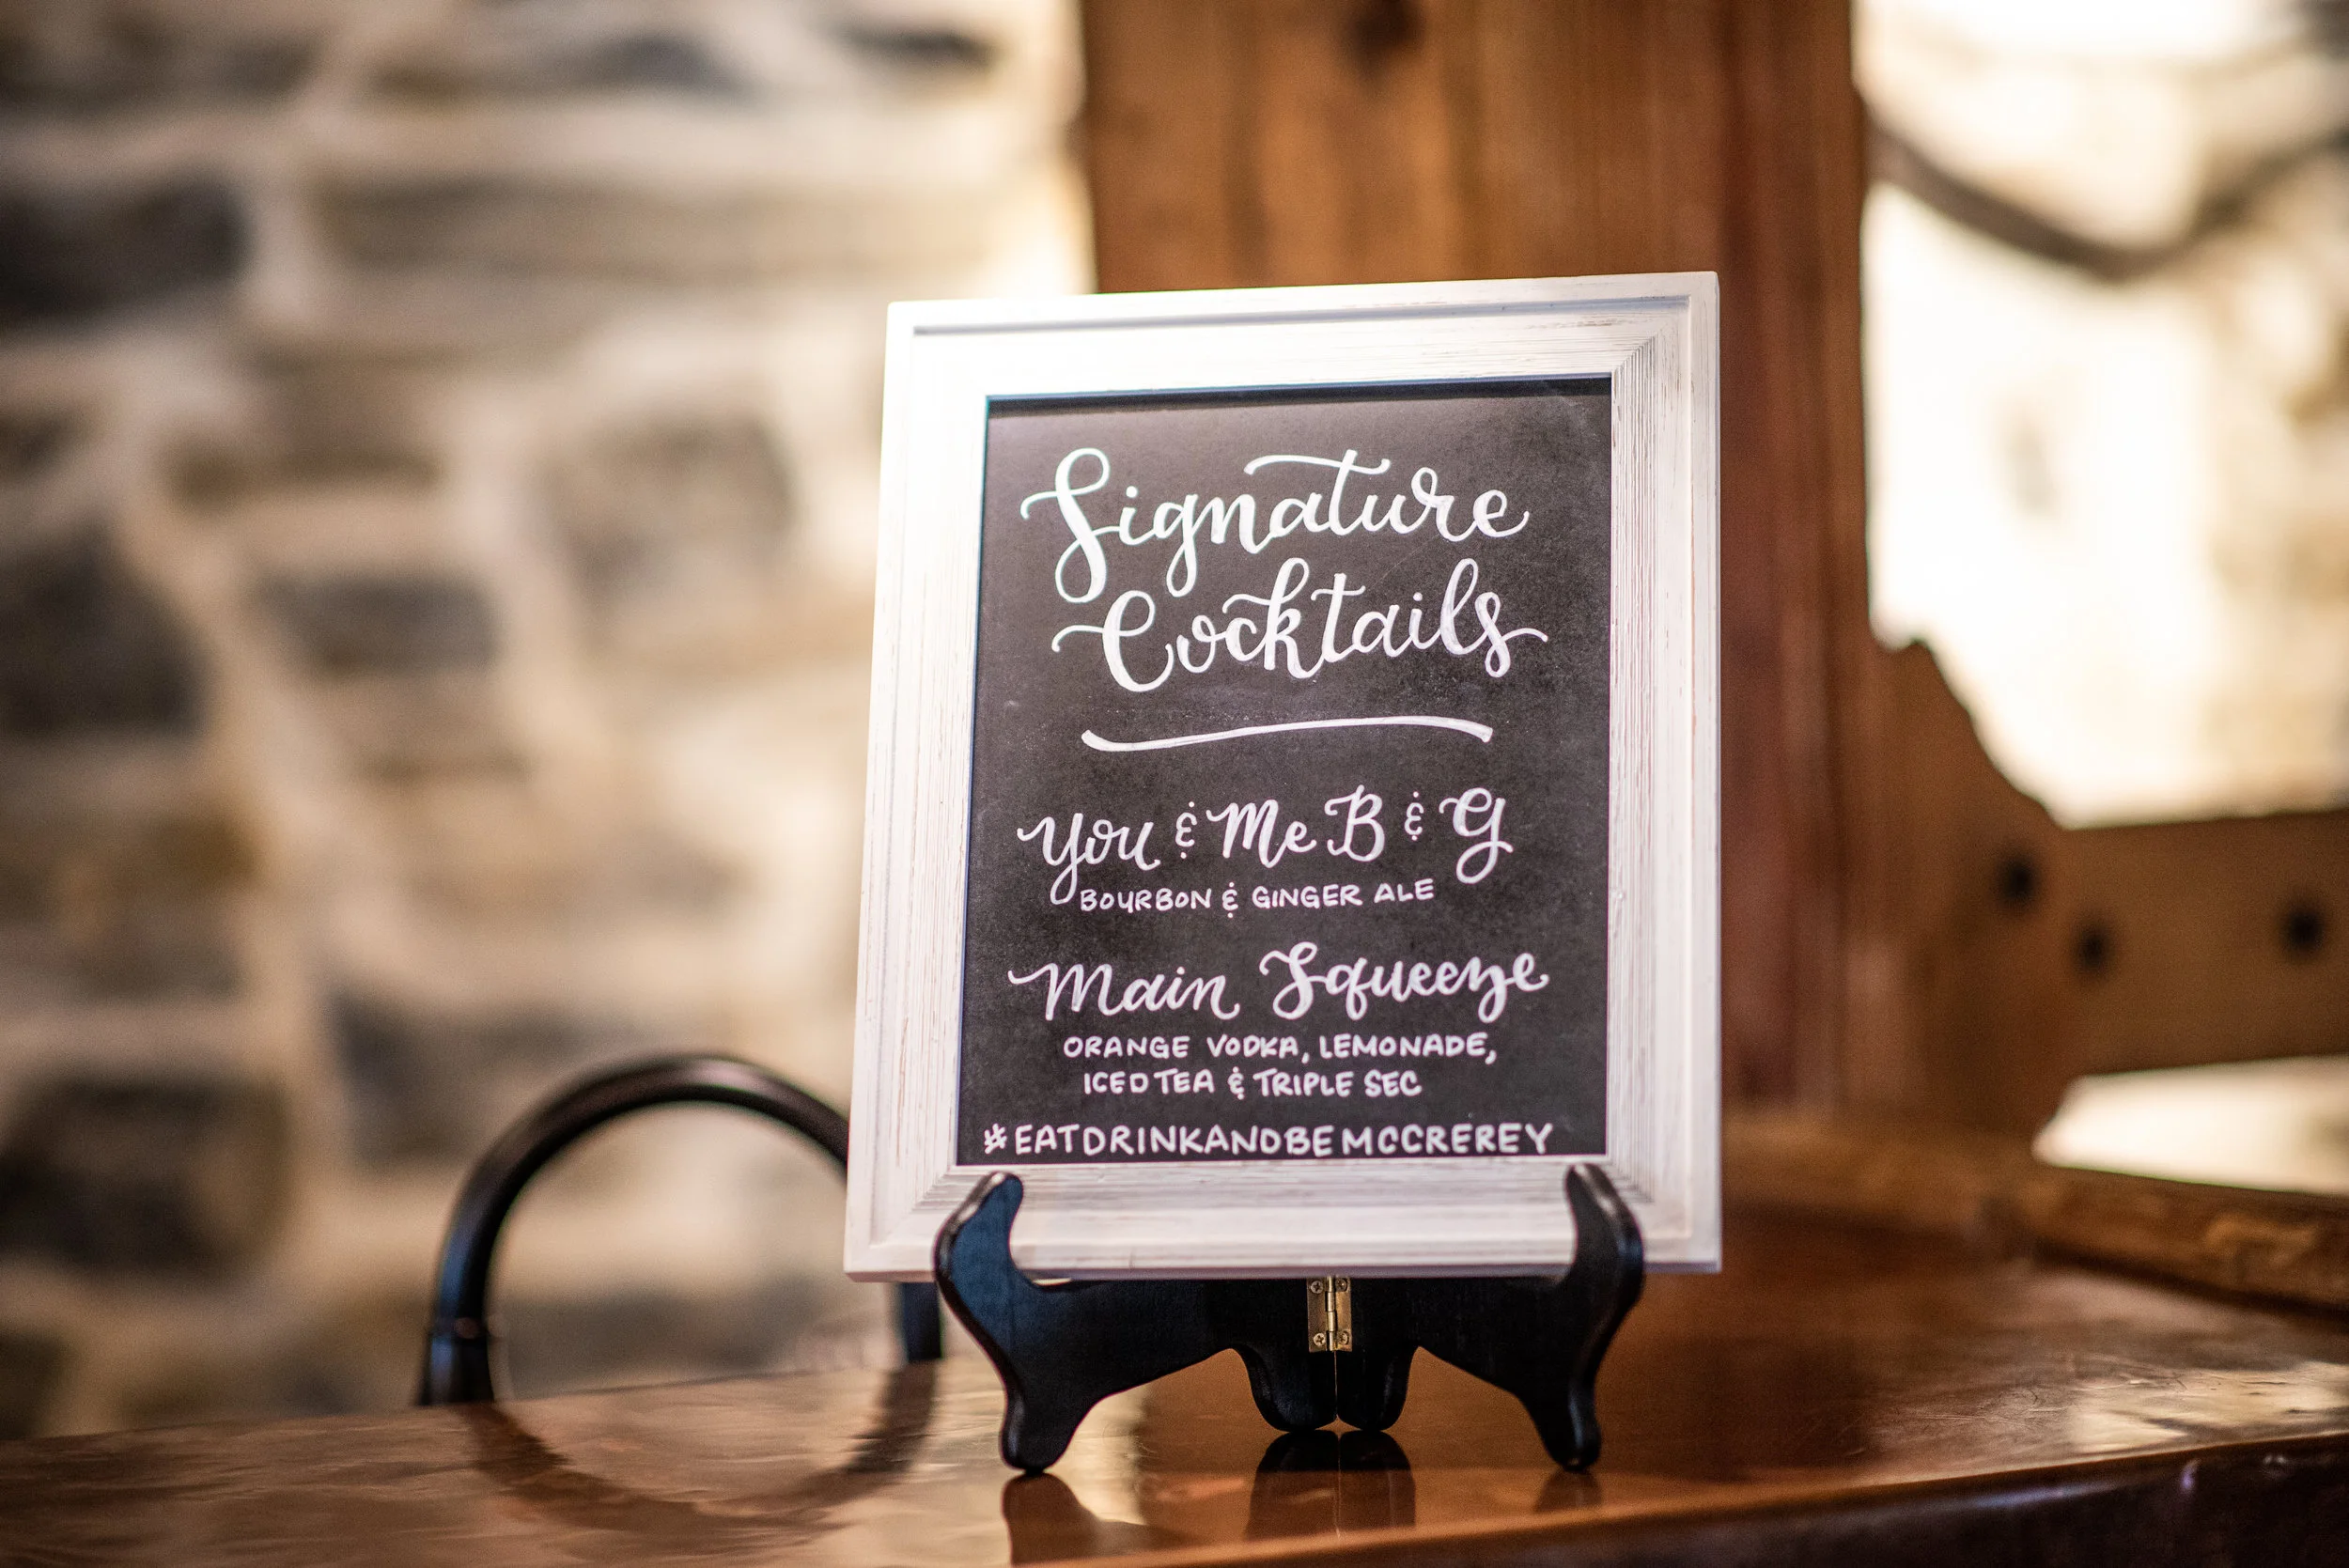 Signature
Cocktails
You & Me B & G
BOURBON & GINGER ALE
Main Squeeze
ORANGE VODKA, LEMONADE,
ICED TEA & TRIPLE SEC
#EATDRINKANDBEMCCREREY